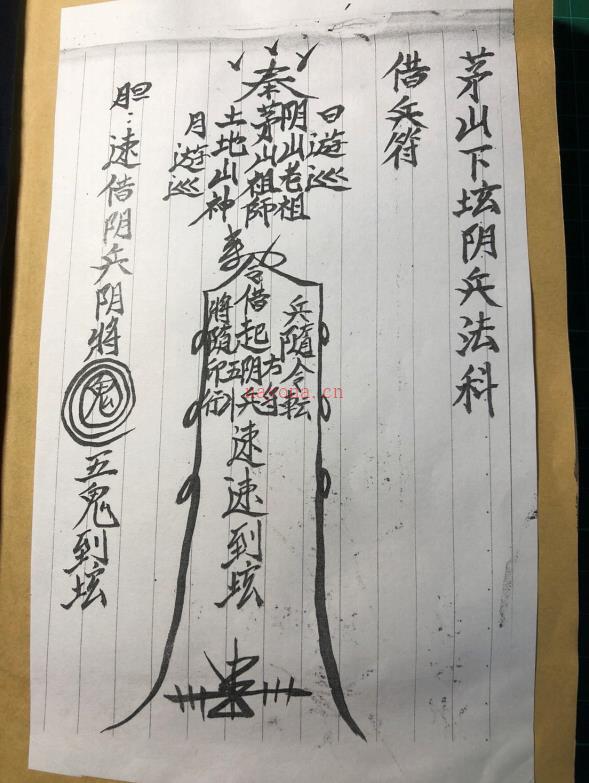 茅山下坛阴兵法科
借兵符
奉
日遊巡
阴山老祖
茅山祖師
土地山神
月遊巡
令
兵隨令転
借起阴兵速速到坛
五方
將隨印
胆：速借阴兵阴將鬼五鬼到坛
nayona.cn